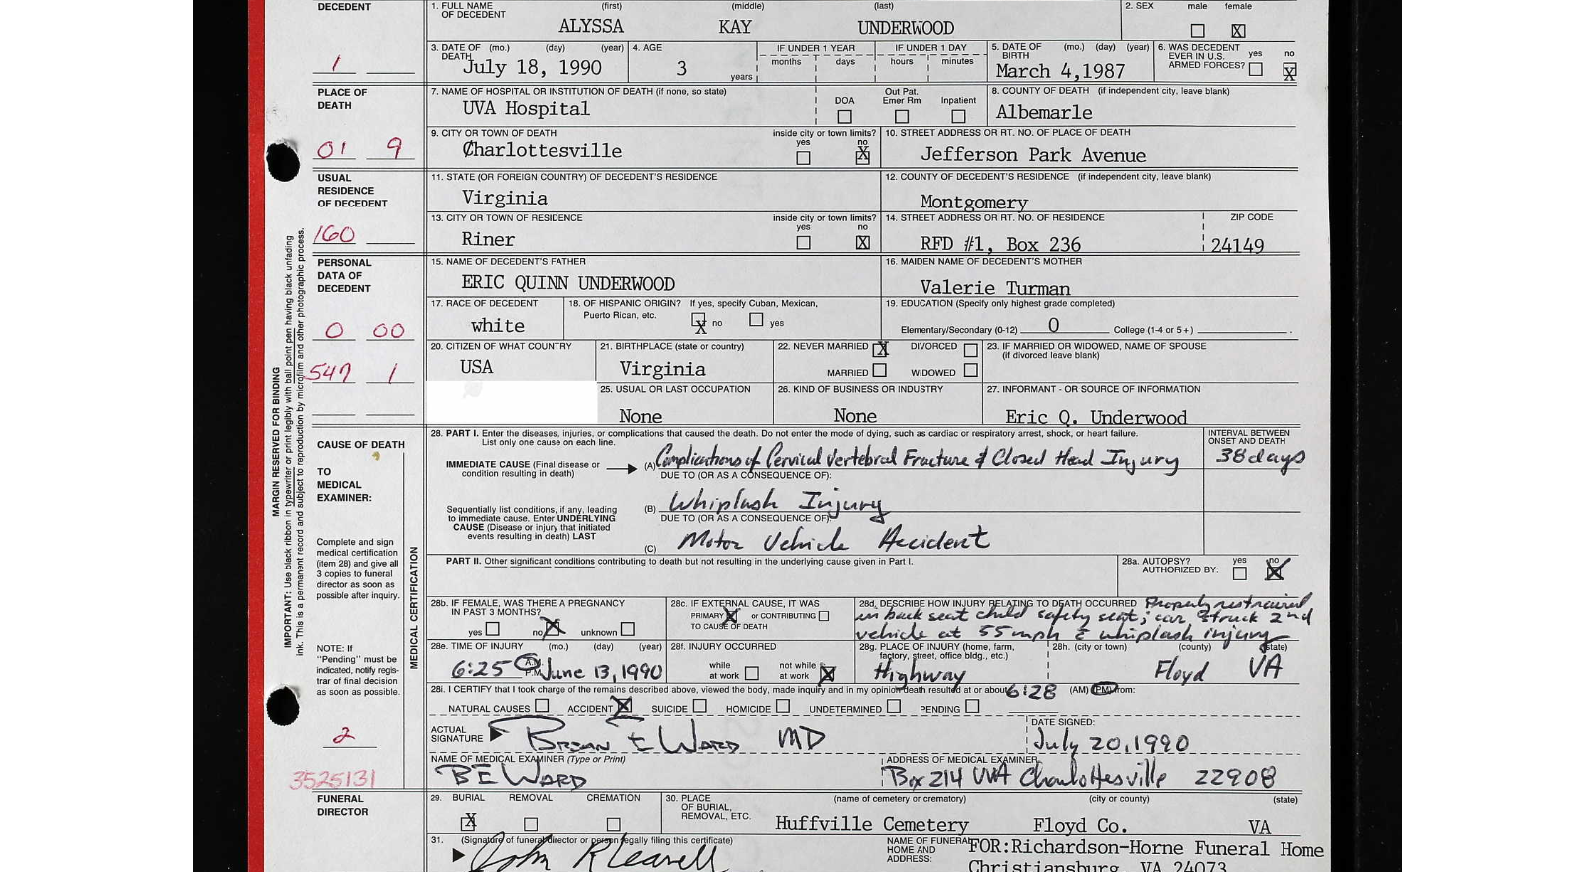 DECEDENT
1. FULL NAME OF DECEDENT (first) (middle) (last)
ALYSSA KAY UNDERWOOD
2. SEX male female
X
3. DATE OF DEATH (mo.) (day) (year)
July 18, 1990
4. AGE
3 years
IF UNDER 1 YEAR
months days
IF UNDER 1 DAY
hours minutes
5. DATE OF BIRTH (mo.) (day) (year)
March 4,1987
6. WAS DECEDENT EVER IN U.S. ARMED FORCES? yes no
X
1
PLACE OF DEATH
7. NAME OF HOSPITAL OR INSTITUTION OF DEATH (if none, so state)
UVA Hospital
DOA
Out Pat. Emer Rm
Inpatient
8. COUNTY OF DEATH (if independent city, leave blank)
Albemarle
01 9
9. CITY OR TOWN OF DEATH
Charlottesville
inside city or town limits?
yes no
X
10. STREET ADDRESS OR RT. NO. OF PLACE OF DEATH
Jefferson Park Avenue
USUAL RESIDENCE OF DECEDENT
11. STATE (OR FOREIGN COUNTRY) OF DECEDENT'S RESIDENCE
Virginia
12. COUNTY OF DECEDENT'S RESIDENCE (if independent city, leave blank)
Montgomery
160
13. CITY OR TOWN OF RESIDENCE
Riner
inside city or town limits?
yes no
X
14. STREET ADDRESS OR RT. NO. OF RESIDENCE
RFD #1, Box 236
ZIP CODE
24149
PERSONAL DATA OF DECEDENT
15. NAME OF DECEDENT'S FATHER
ERIC QUINN UNDERWOOD
16. MAIDEN NAME OF DECEDENT'S MOTHER
Valerie Turman
0 00
17. RACE OF DECEDENT
white
18. OF HISPANIC ORIGIN? If yes, specify Cuban, Mexican, Puerto Rican, etc.
X no yes
19. EDUCATION (Specify only highest grade completed)
Elementary/Secondary (0-12) 0 College (1-4 or 5+)
547 1
20. CITIZEN OF WHAT COUNTRY
USA
21. BIRTHPLACE (state or country)
Virginia
22. NEVER MARRIED X DIVORCED
MARRIED WIDOWED
23. IF MARRIED OR WIDOWED, NAME OF SPOUSE
(if divorced leave blank)
25. USUAL OR LAST OCCUPATION
None
26. KIND OF BUSINESS OR INDUSTRY
None
27. INFORMANT - OR SOURCE OF INFORMATION
Eric Q. Underwood
MARGIN RESERVED FOR BINDING
IMPORTANT: Use black ribbon in typewriter or print legibly with ball point pen having black unfading
ink. This is a permanent record and subject to reproduction by microfilm and other photographic process.
CAUSE OF DEATH
TO MEDICAL EXAMINER:
Complete and sign
medical certification
(item 28) and give all
3 copies to funeral
director as soon as
possible after inquiry.
NOTE: If
"Pending" must be
indicated, notify regis-
trar of final decision
as soon as possible.
MEDICAL CERTIFICATION
28. PART I. Enter the diseases, injuries, or complications that caused the death. Do not enter the mode of dying, such as cardiac or respiratory arrest, shock, or heart failure.
List only one cause on each line.
INTERVAL BETWEEN ONSET AND DEATH
IMMEDIATE CAUSE (Final disease or condition resulting in death)
(A) Complications of Cervical Vertebral Fracture & Closed Head Injury
38 days
DUE TO (OR AS A CONSEQUENCE OF):
Sequentially list conditions, if any, leading
to immediate cause. Enter UNDERLYING
CAUSE (Disease or injury that initiated
events resulting in death) LAST
(B) Whiplash Injury
DUE TO (OR AS A CONSEQUENCE OF):
(C) Motor Vehicle Accident
PART II. Other significant conditions contributing to death but not resulting in the underlying cause given in Part I.
28a. AUTOPSY? AUTHORIZED BY: yes no
X
28b. IF FEMALE, WAS THERE A PREGNANCY IN PAST 3 MONTHS?
yes no X unknown
28c. IF EXTERNAL CAUSE, IT WAS
PRIMARY X or CONTRIBUTING
TO CAUSE OF DEATH
28d. DESCRIBE HOW INJURY RELATING TO DEATH OCCURRED Properly restrained
in back seat child safety seat; car struck 2nd
vehicle at 55 mph c whiplash injury
28e. TIME OF INJURY (mo.) (day) (year)
6:25 A.M. P.M. June 13, 1990
28f. INJURY OCCURRED
while at work not while at work X
28g. PLACE OF INJURY (home, farm, factory, street, office bldg., etc.)
Highway
28h. (city or town) (county) (state)
Floyd VA
28i. I CERTIFY that I took charge of the remains described above, viewed the body, made inquiry and in my opinion death resulted at or about 6:28 (AM) (PM) from:
NATURAL CAUSES ACCIDENT X SUICIDE HOMICIDE UNDETERMINED PENDING
2
ACTUAL SIGNATURE
Brian E Ward MD
DATE SIGNED:
July 20, 1990
NAME OF MEDICAL EXAMINER (Type or Print)
BE Ward
ADDRESS OF MEDICAL EXAMINER
Box 214 UVA Charlottesville 22908
3525131
FUNERAL DIRECTOR
29. BURIAL REMOVAL CREMATION
X
30. PLACE OF BURIAL, REMOVAL, ETC. (name of cemetery or crematory) (city or county) (state)
Huffville Cemetery Floyd Co. VA
31. (Signature of funeral director or person legally filing this certificate)
John R Leavell
NAME OF FUNERAL HOME AND ADDRESS:
FOR:Richardson-Horne Funeral Home
Christiansburg, VA 24073